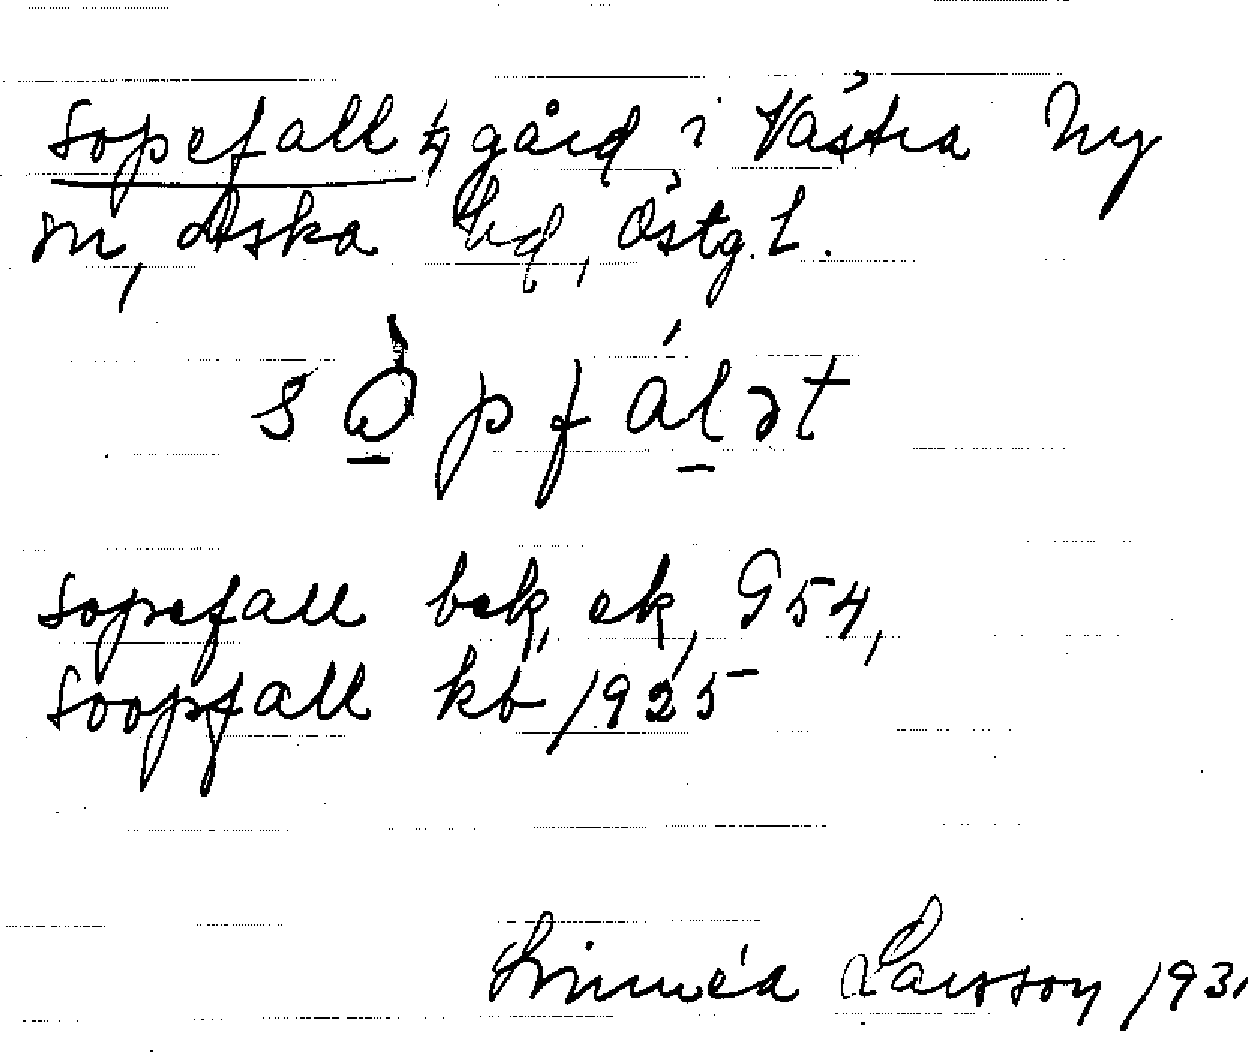 Sopefall, gård i Västra Ny
sn, Aska hd, Östg. l.
sòpfálət
Sopefall bek, ek, G 54,
Soopfall kb 1925
Linnéa Larsson 1931